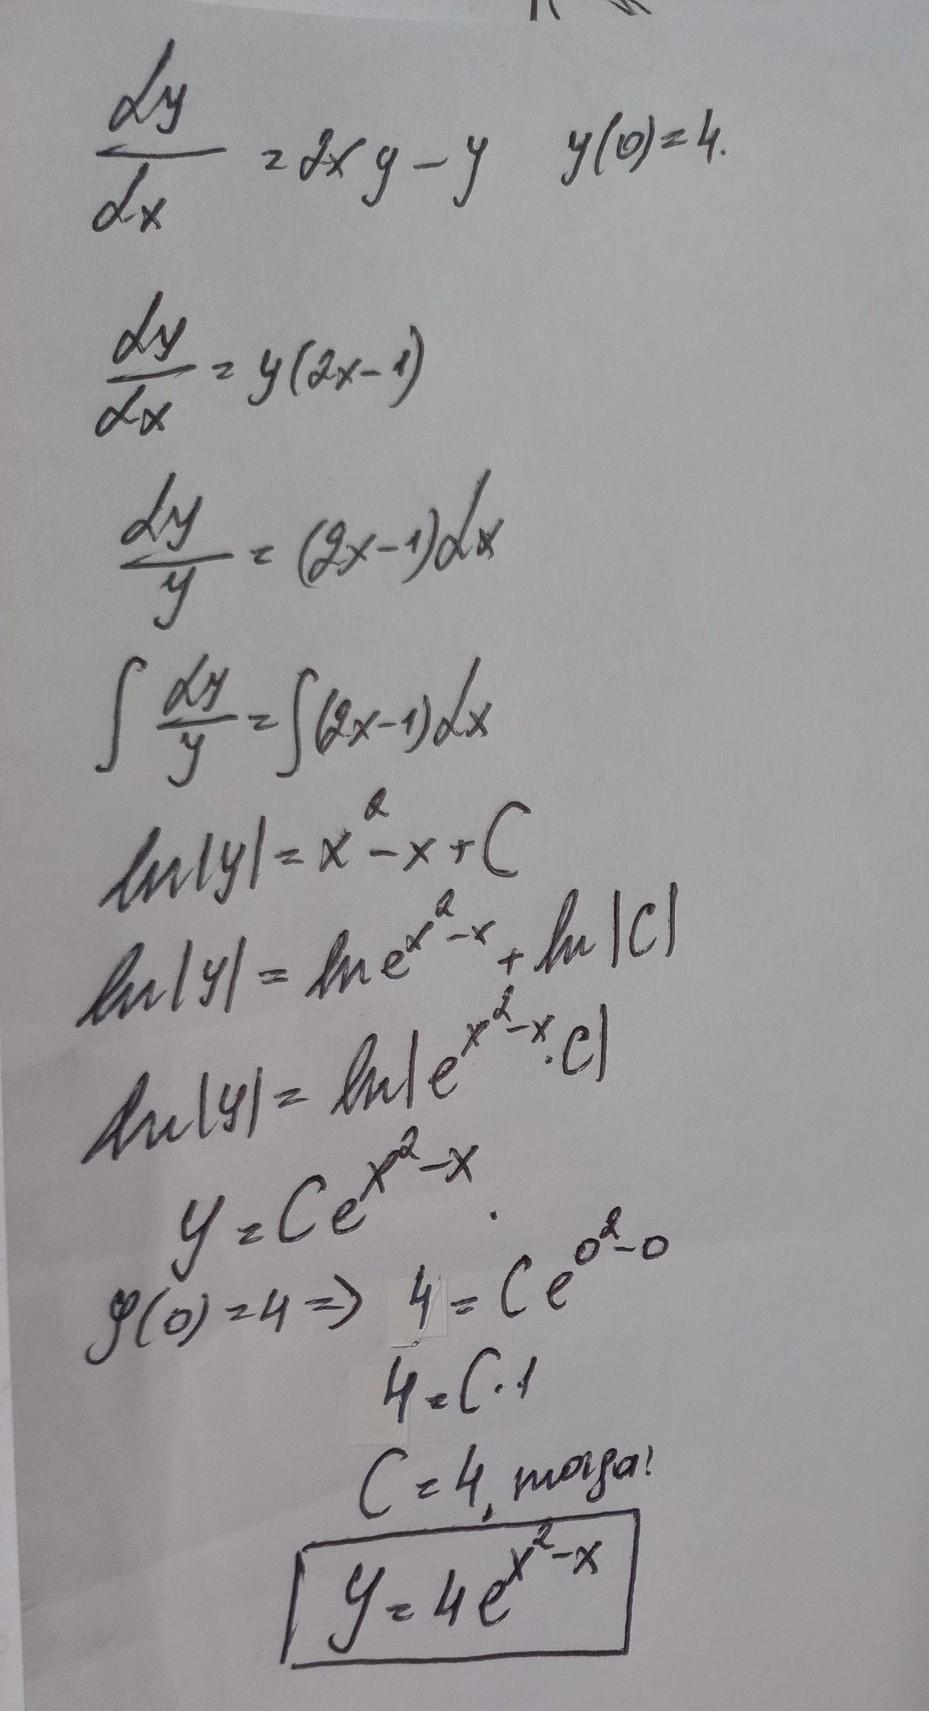 dy/dx = 2xy - y y(0)=4.
dy/dx = y(2x-1)
dy/y = (2x-1)dx
∫ dy/y = ∫(2x-1)dx
ln|y| = x² - x + C
ln|y| = ln e^(x²-x) + ln|C|
ln|y| = ln|e^(x²-x) · C|
y = Ce^(x²-x).
y(0)=4 => 4 = Ce^(0²-0)
4 = C·1
C = 4, тогда:
y = 4e^(x²-x)